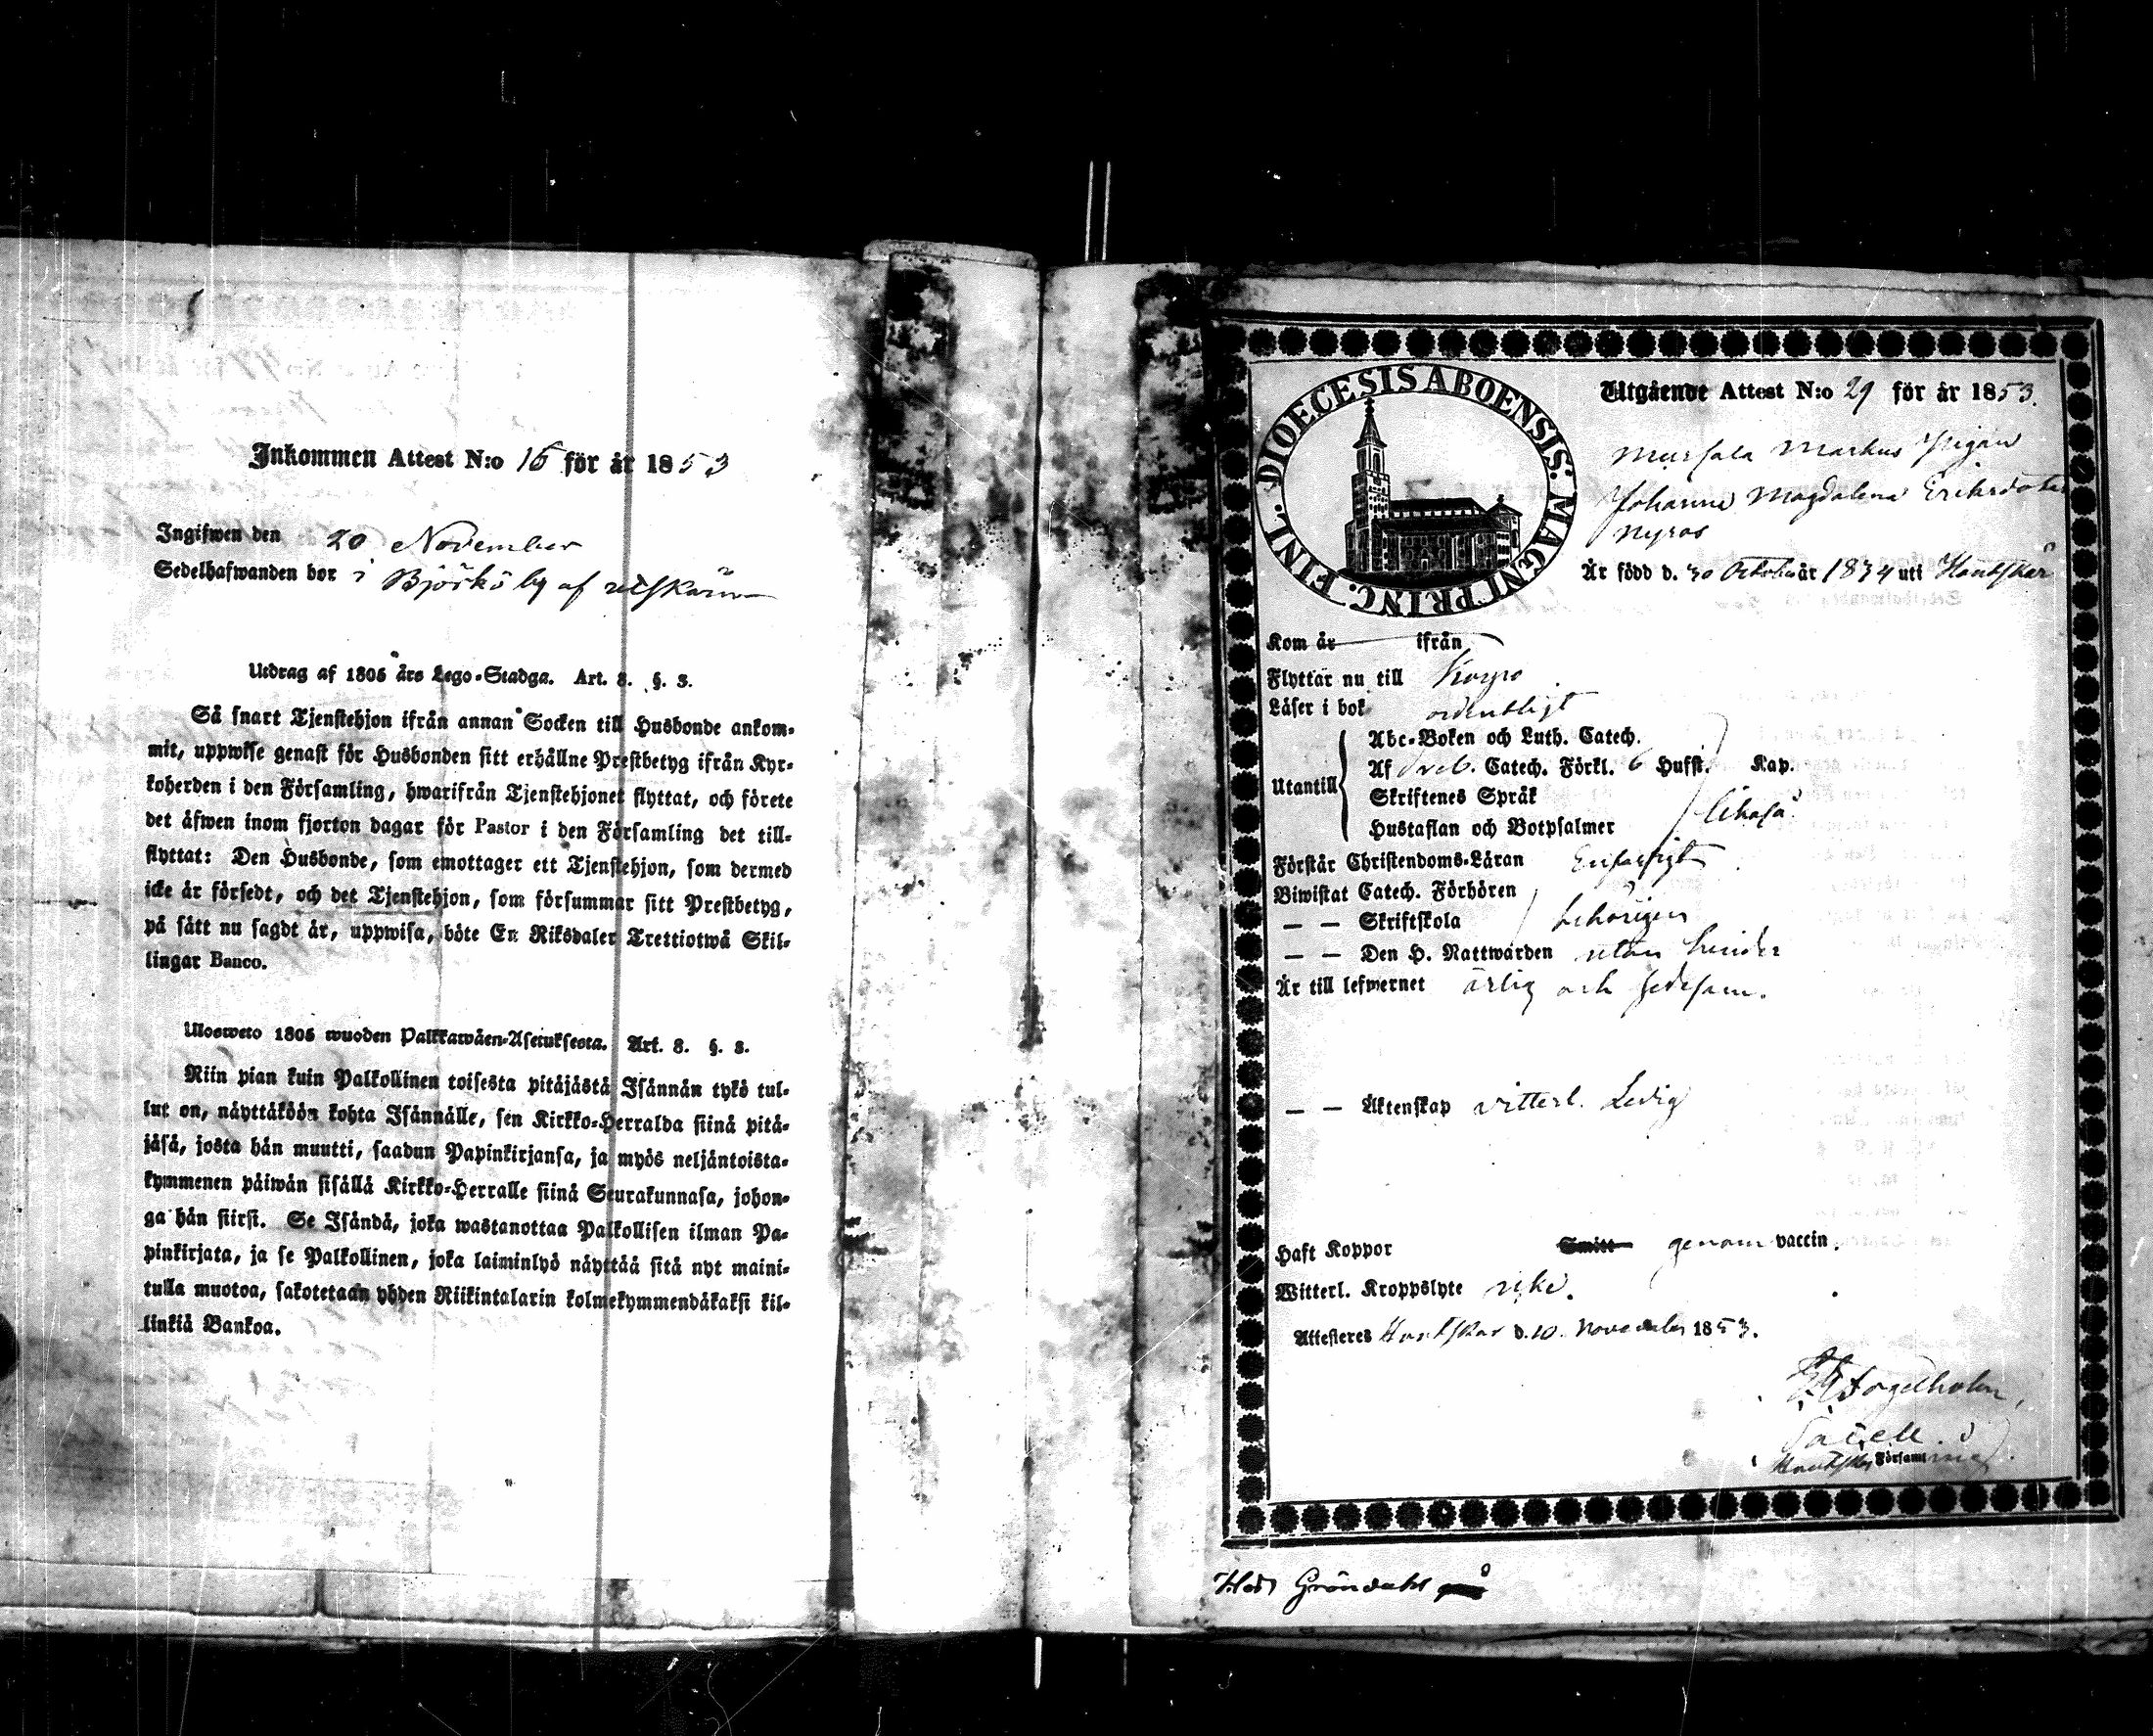 Inkommen Attest N:o 15 för år 1853
Ingifwen den 20 November
Sedelhafwanden bor i Björkö by af utskären
Utdrag af 1805 års Lego-Stadga. Art. 8. §. 3.
Så snart Tjenstehjon ifrån annan Socken till Husbonde ankom-
mit, uppwise genast för Husbonden sitt erhållne Prestbetyg ifrån Kyr-
koherden i den Församling, hwarifrån Tjenstehjonet flyttat, och förete
det äfwen inom fjorton dagar för Pastor i den Församling det till-
flyttat: Den Husbonde, som emottager ett Tjenstehjon, som dermed
icke är försedt, och det Tjenstehjon, som försummar sitt Prestbetyg,
på sätt nu sagdt är, uppwisa, böte En Riksdaler Trettiotwå Skil-
lingar Banco.
Ulosweto 1805 wuoden Palkkawäen-Asetuksesta. Art. 8. §. 3.
Niin pian kuin Palkollinen toisesta pitäjästä Isännän tykö tul-
lut on, näyttäköön kohta Isännälle, sen Kirkko-Herralda siinä pitä-
jäsä, josta hän muutti, saadun Papinkirjansa, ja myös neljäntoista-
kymmenen päiwän sisällä Kirkko-Herralle siinä Seurakunnasa, johon-
ga hän siirsi. Se Isändä, joka wastanottaa Palkollisen ilman Pa-
pinkirjata, ja se Palkollinen, joka laiminlyö näyttää sitä nyt maini-
tulla muotoa, sakotetaan yhden Riikintalarin kolmekymmendäkaksi kil-
linkiä Bankoa.
DIOECESIS ABOENSIS. MAGNI PRINC. FINL.
Utgående Attest N:o 29 för år 1853.
Mursala Markus Pigan
Johanna Magdalena Eriksdoter
Nyroos
Är född d. 30 October år 1834 uti Houtskär
Kom år ifrån
Flyttar nu till Korpo
Läser i bok ordentligt
Abc-Boken och Luth. Catech.
Utantill Af Sveb. Catech. Förkl. 6 Hufst. Kap.
Skriftenes Språk
Hustaflan och Botpsalmer likaså
Förstår Christendoms-Läran Enfaldigt
Biwistat Catech. Förhören
— — Skriftskola behörigen
— — Den H. Nattwarden utan hinder
Är till lefwernet ärlig och sedesam.
— — Äktenskap vitterl. Ledig
Haft Koppor Smitt genom vaccin.
Witterl. Kroppslyte icke.
Attesteres Houtskär d. 10. November 1853.
Fogelholm
Sacell. i
Houtskär Församling.
Gröndahl